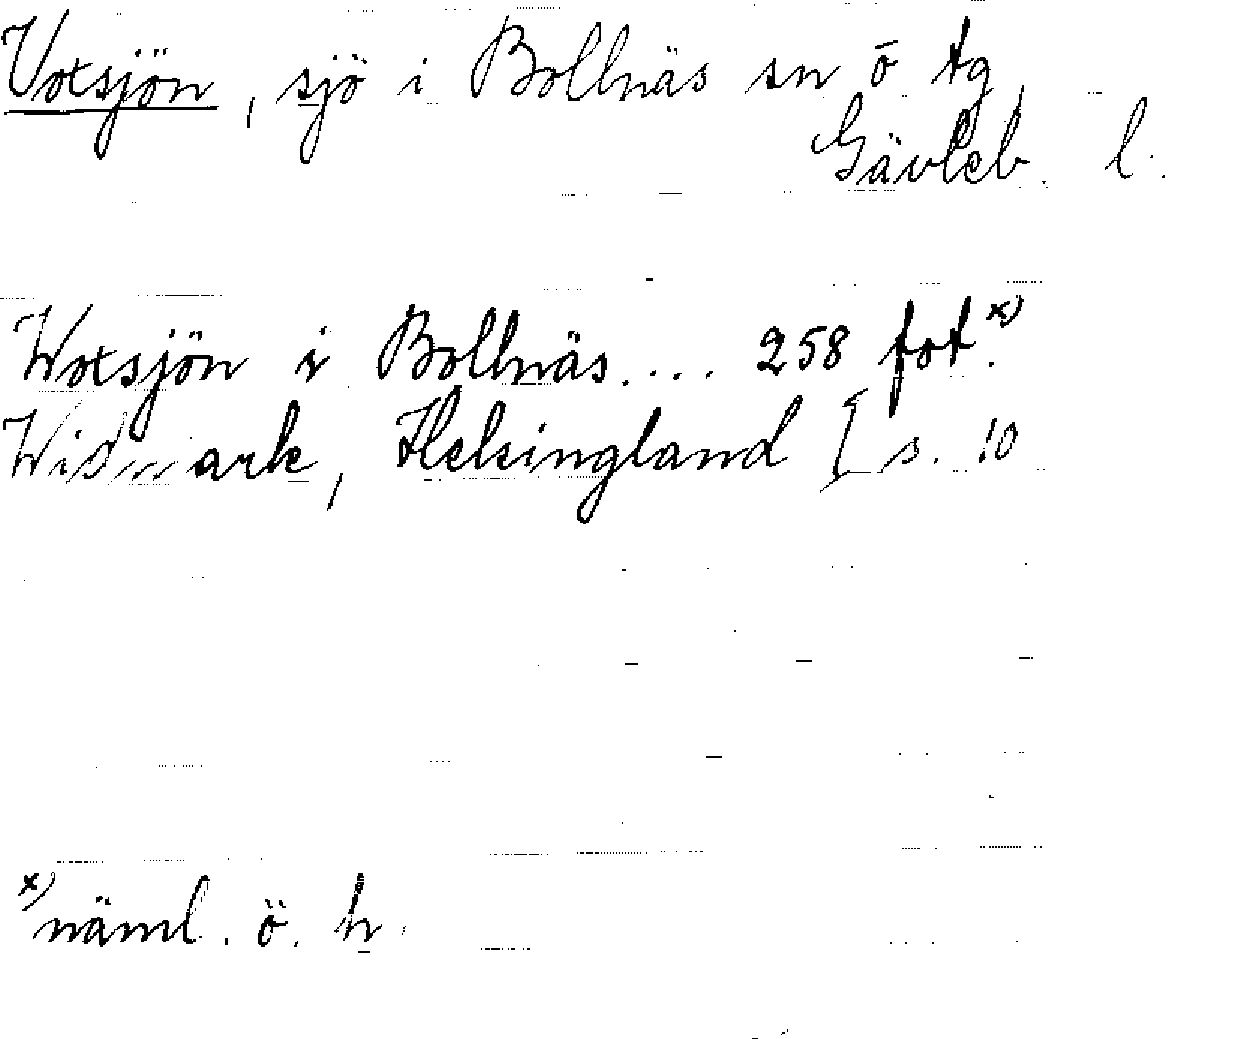 Voxsjön, sjö i Bollnäs sn o tg
Gävleb. l.
Woxsjön i Bollnäs.... 258 fot.x)
Widmark, Helsingland [s. 10
x) näml. ö. h.